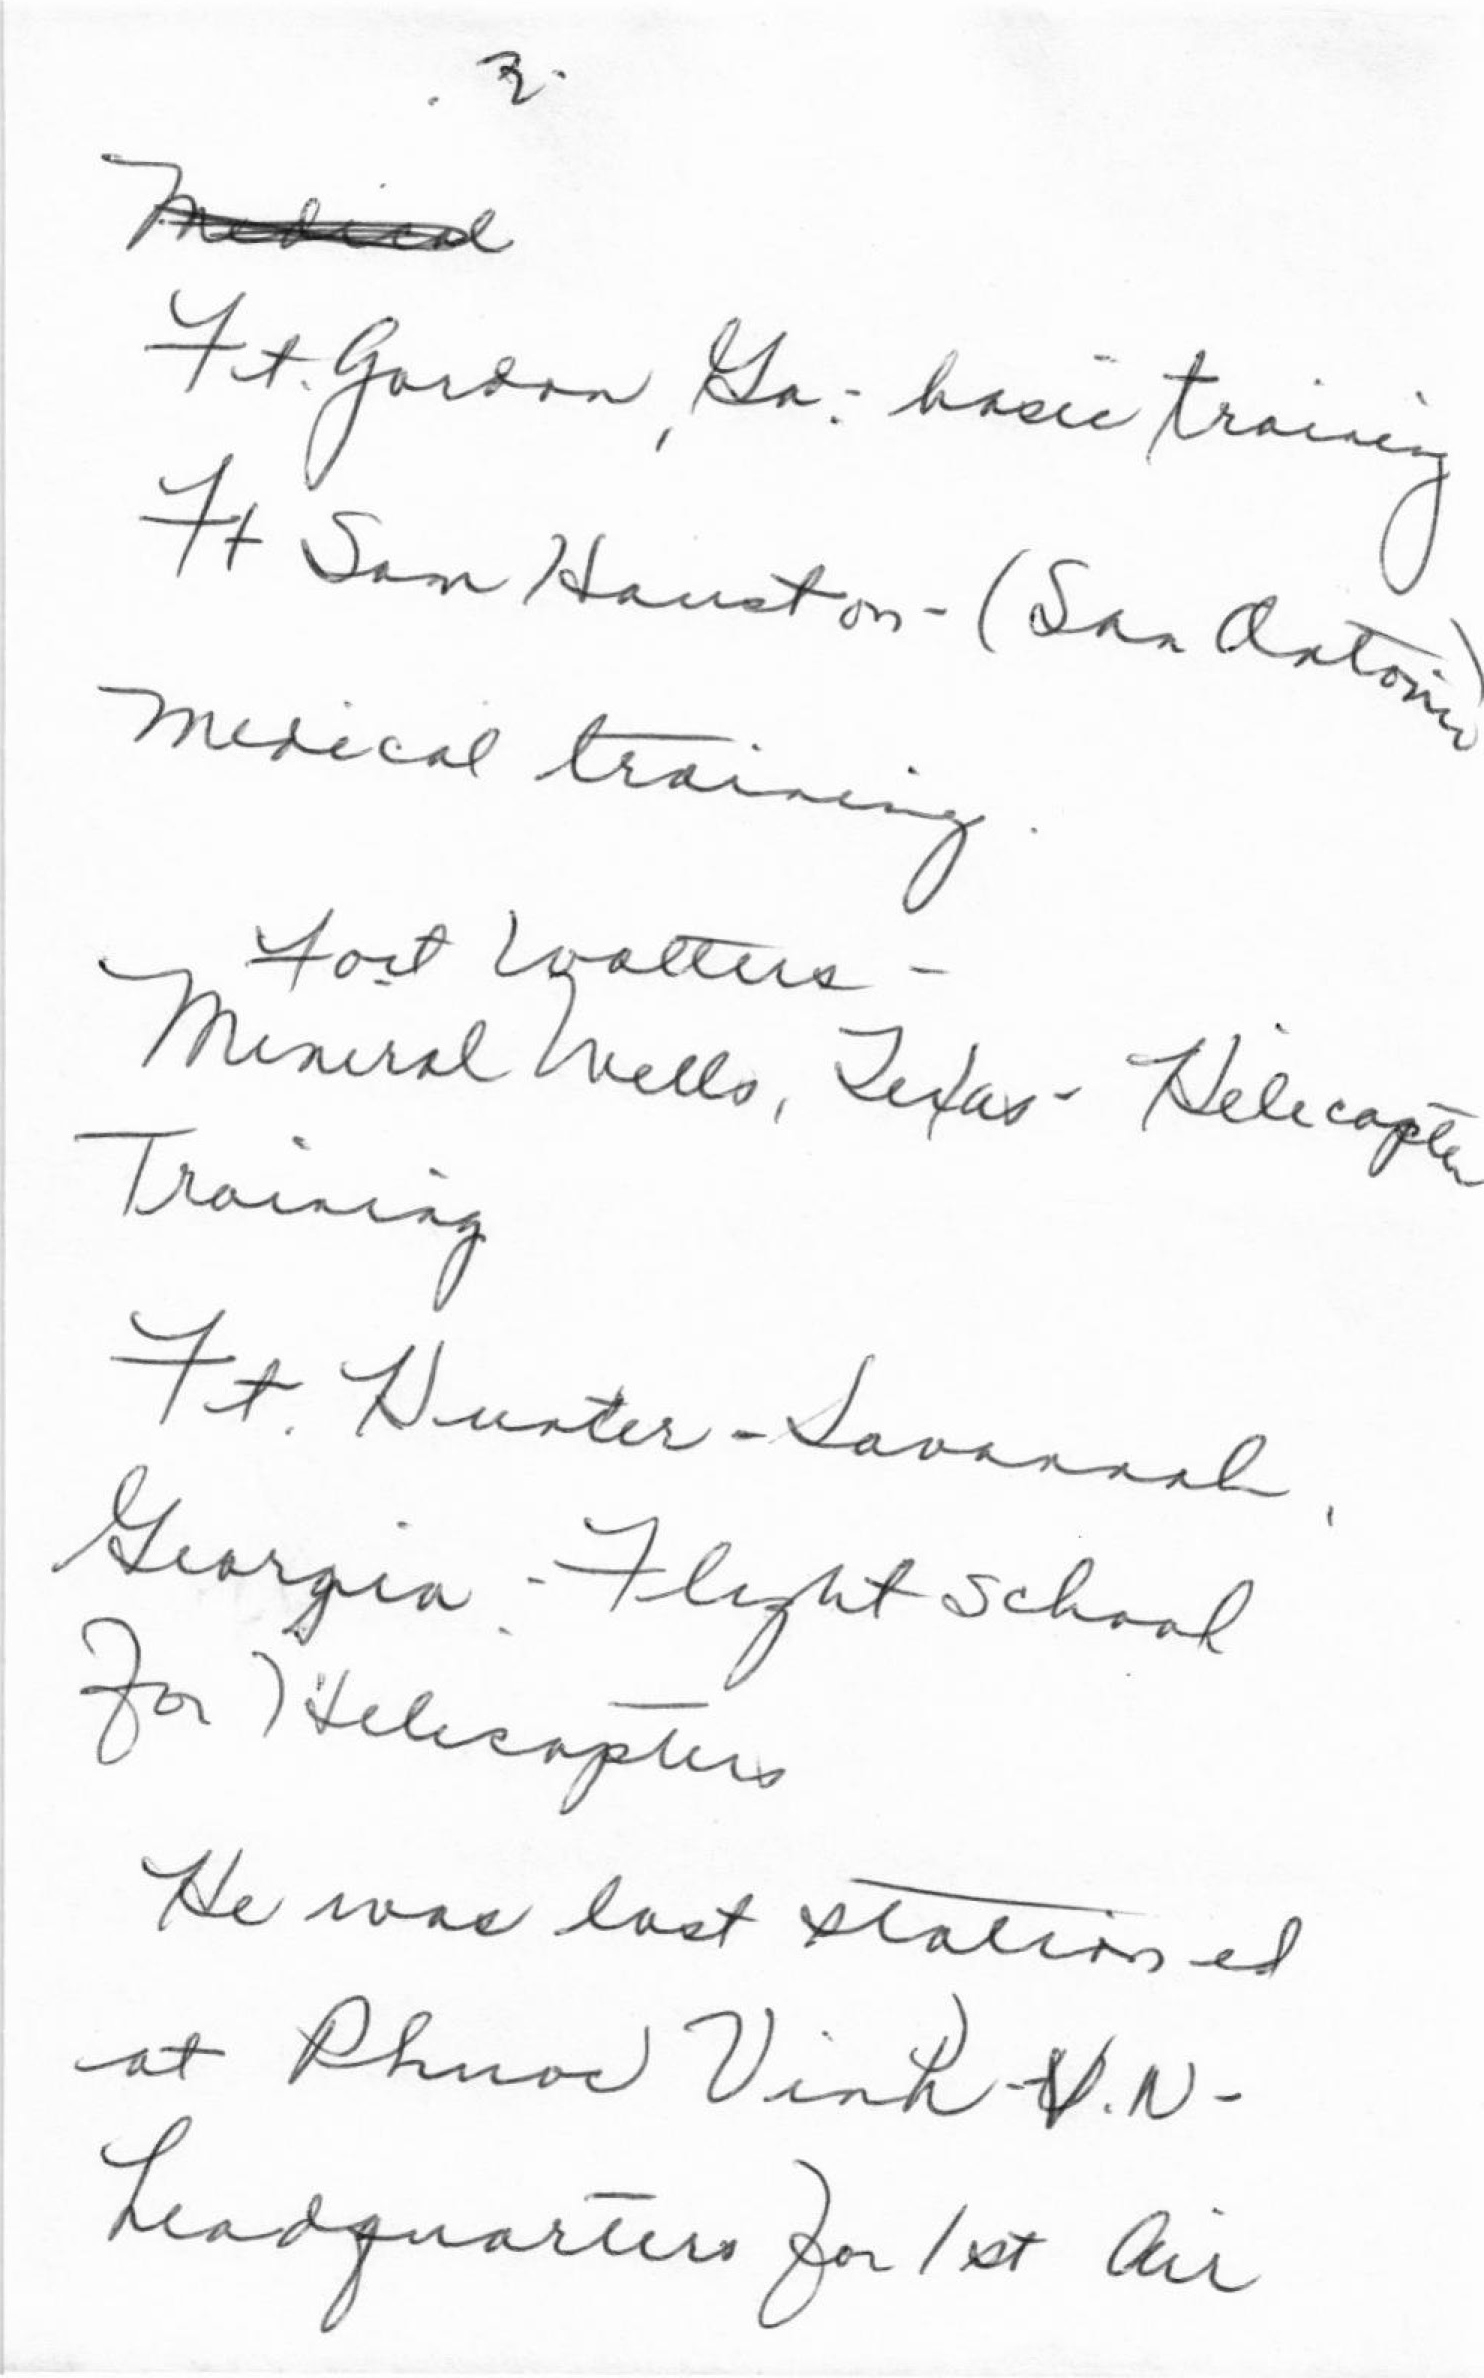 2.
Medical
Ft. Gordon, Ga. - basic training
Ft Sam Houston - (San Antonio)
Medical training.
Fort Wolters -
Mineral Wells, Texas - Helicopter
Training
Ft. Hunter - Savannah,
Georgia - Flight school
for Helicopters
He was last stationed
at Phuoc Vinh - V.N -
headquarters for 1st Air